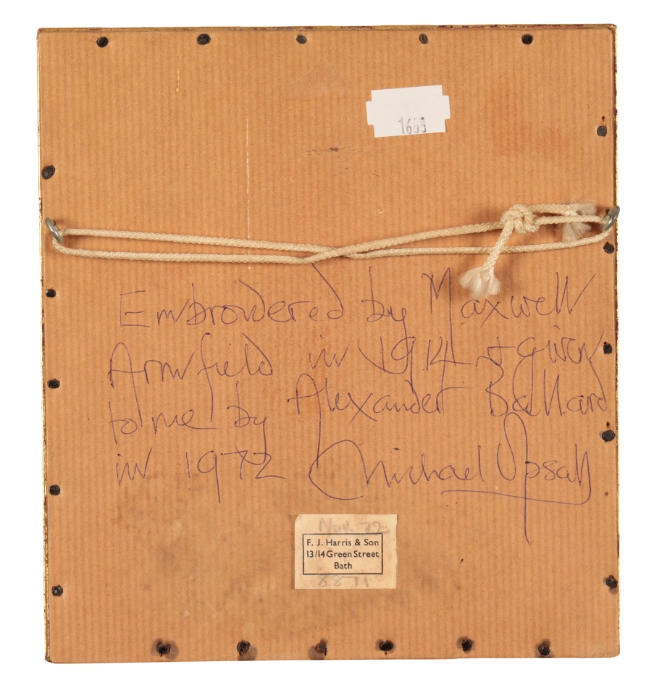 1688
Embroidered by Maxwell
Armfield in 1914 & given
to me by Alexander Ballard
in 1972 Michael Upsall
Nov. 72
F. J. Harris & Son
13/14 Green Street
Bath